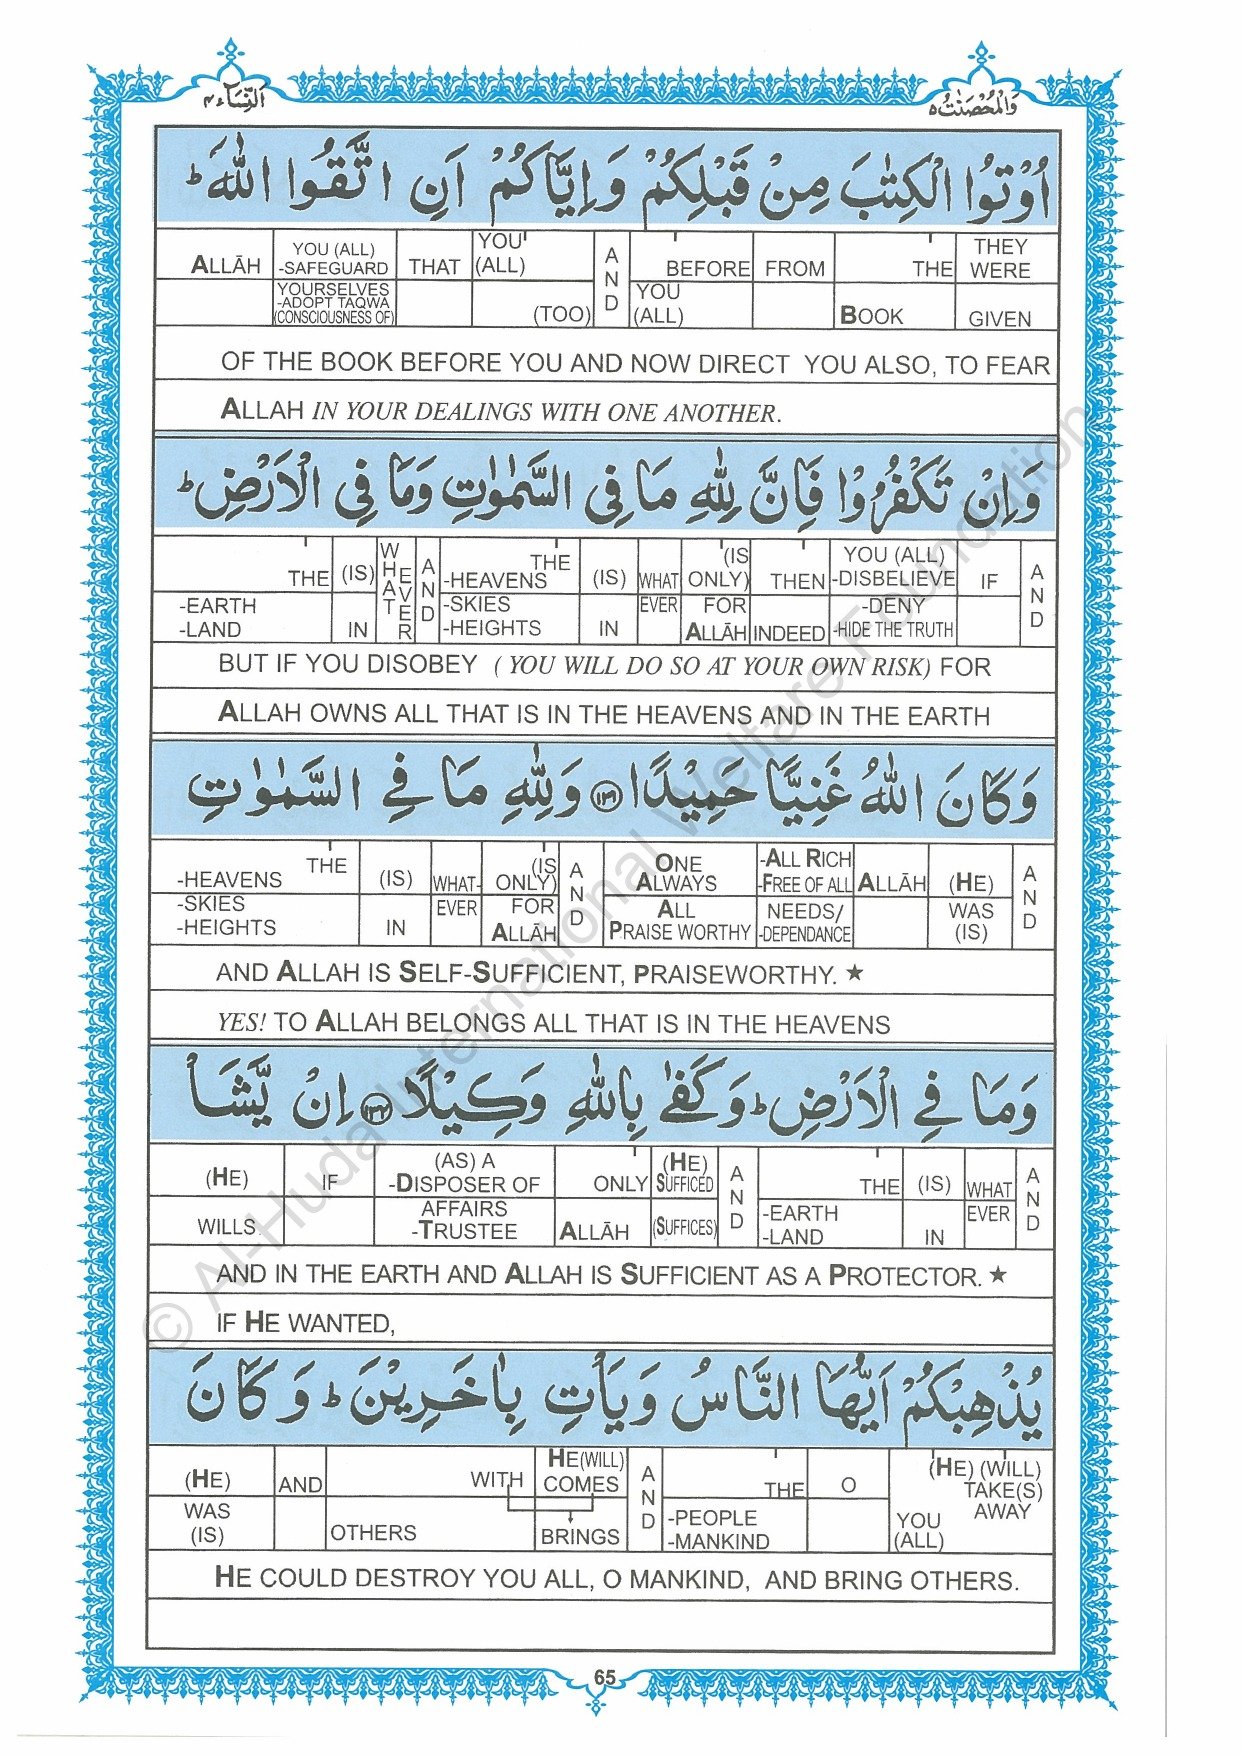 اَلنِّسَآء ٤
وَالْمُحْصَنٰتُ ٥
اُوْتُوا الْكِتٰبَ مِنْ قَبْلِكُمْ وَاِيَّاكُمْ اَنِ اتَّقُوا اللّٰهَ ؕ
ALLĀH | YOU (ALL) -SAFEGUARD | THAT | YOU (ALL) | AND | BEFORE | FROM | THE | THEY WERE
YOURSELVES -ADOPT TAQWA (CONSCIOUSNESS OF) | (TOO) | YOU (ALL) | BOOK | GIVEN
OF THE BOOK BEFORE YOU AND NOW DIRECT YOU ALSO, TO FEAR
ALLAH IN YOUR DEALINGS WITH ONE ANOTHER.
وَاِنْ تَكْفُرُوْا فَاِنَّ لِلّٰهِ مَا فِى السَّمٰوٰتِ وَمَا فِى الْاَرْضِ ؕ
THE | (IS) | WHATEVER | AND | THE -HEAVENS | (IS) | WHAT | (IS ONLY) | THEN | YOU (ALL) -DISBELIEVE | IF | AND
-EARTH -LAND | IN | -SKIES -HEIGHTS | IN | EVER | FOR ALLĀH | INDEED | -DENY -HIDE THE TRUTH
BUT IF YOU DISOBEY ( YOU WILL DO SO AT YOUR OWN RISK) FOR
ALLAH OWNS ALL THAT IS IN THE HEAVENS AND IN THE EARTH
وَكَانَ اللّٰهُ غَنِيًّا حَمِيْدًا ١٣١ وَلِلّٰهِ مَا فِى السَّمٰوٰتِ
THE -HEAVENS | (IS) | WHAT- | (IS ONLY) | AND | ONE ALWAYS | -ALL RICH -FREE OF ALL | ALLĀH | (HE) | AND
-SKIES -HEIGHTS | IN | EVER | FOR ALLĀH | ALL PRAISE WORTHY | NEEDS/ -DEPENDANCE | WAS (IS)
AND ALLAH IS SELF-SUFFICIENT, PRAISEWORTHY. ★
YES! TO ALLAH BELONGS ALL THAT IS IN THE HEAVENS
وَمَا فِى الْاَرْضِ ؕ وَكَفٰى بِاللّٰهِ وَكِيْلًا ١٣٢ اِنْ يَّشَاْ
(HE) | IF | (AS) A -DISPOSER OF | ONLY | (HE) SUFFICED | AND | THE | (IS) | WHAT | AND
WILLS | AFFAIRS -TRUSTEE | ALLĀH | (SUFFICES) | -EARTH -LAND | IN | EVER
AND IN THE EARTH AND ALLAH IS SUFFICIENT AS A PROTECTOR. ★
IF HE WANTED,
يُذْهِبْكُمْ اَيُّهَا النَّاسُ وَيَاْتِ بِاٰخَرِيْنَ ؕ وَكَانَ
(HE) | AND | WITH | HE(WILL) COMES | AND | THE | O | (HE) (WILL) TAKE(S) AWAY
WAS (IS) | OTHERS | BRINGS | -PEOPLE -MANKIND | YOU (ALL)
HE COULD DESTROY YOU ALL, O MANKIND, AND BRING OTHERS.
65
© Al-Huda International Welfare Foundation